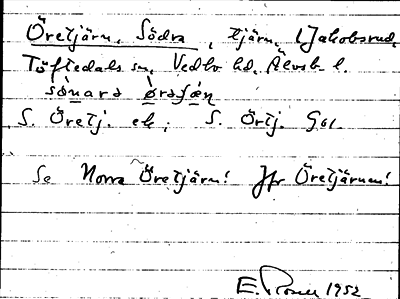 Öretjärn, Södra, tjärn, i Jakobsrud,
Töftedals sn, Vedbo hd, Älvsb. l.
sònara ø̀raʃæn
S. Öretj. ek; S. Örtj. Gsi.
Se Norra Öretjärn! Jfr Öretjärnen!
E. 1952